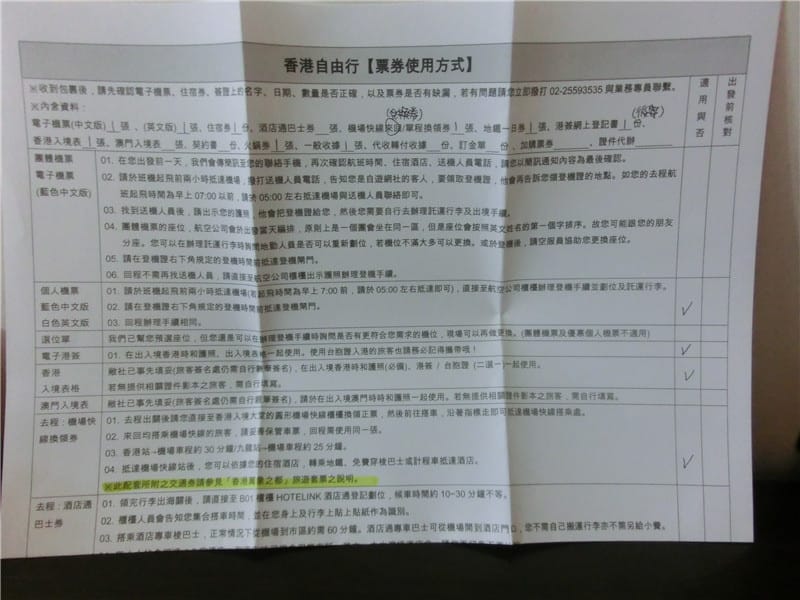 香港自由行【票券使用方式】
適用與否
出發前核對
※收到包裹後，請先確認電子機票、住宿券、簽證上的名字、日期、數量是否正確，以及票券是否有缺漏，若有問題請您立即撥打 02-25593535 與業務專員聯繫。
※內含資料：
電子機票(中文版) 1 張、(英文版) 1 張、住宿 1 份、酒店通巴士券 張、機場快線來回/單程換領券 1 張、地鐵一日券 1 張、港簽網上登記書 1 份、
香港入境表 1 張、澳門入境表 張、契約書 份、火鍋券 1 張、一般收據 1 張、代收轉付收據 份、訂金單 份、加購票券 、證件代辦
團體機票
電子機票
(藍色中文版)
01. 在您出發前一天，我們會傳簡訊至您的聯絡手機，再次確認航班時間、住宿酒店、送機人員電話，請您以簡訊通知內容為最後確認。
02. 請於班機起飛前兩小時抵達機場，撥打送機人員電話，告知您是自遊網社的客人，要領取登機證，他會再告訴您領登機證的地點。如您的去程航
班起飛時間為早上 07:00 以前，請於 05:00 左右抵達機場與送機人員聯絡即可。
03. 找到送機人員後，請出示您的護照，他會把登機證給您，然後您需要自行去辦理託運行李及出境手續。
04. 團體機票的座位，航空公司會於出發當天編排，原則上是一個團會坐在同一區，但是座位會按照英文姓名的第一個字排序。故您可能跟您的朋友
分座。您可以在辦理託運行李時詢問地勤人員是否可以重新劃位，若機位不滿大多可以更換。或於登機後，請空服員協助您更換座位。
05. 請在登機證右下角規定的登機時間前抵達登機閘門。
06. 回程不需再找送機人員，請直接至航空公司櫃檯出示護照辦理登機手續。
個人機票
藍色中文版
白色英文版
01. 請於班機起飛前兩小時抵達機場(若起飛時間為早上 7:00 前，請於 05:00 左右抵達即可)，直接至航空公司櫃檯辦理登機手續並劃位及託運行李。
02. 請在登機證右下角規定的登機時間前抵達登機閘門。
03. 回程辦理手續相同。
選位單
我們已幫您預選座位，但您還是可以在辦理登機手續時詢問是否有更符合您需求的機位，現場可以再做更換。(團體機票及優惠個人機票不適用)
電子港簽
01. 在出入境香港時和護照、出入境表格一起使用。使用台胞證入港的旅客也請務必記得攜帶哦！
香港
入境表格
敝社已事先填妥(旅客簽名處仍需自行親筆簽名)，在出入境香港時和護照(必備)、港簽 / 台胞證 (二選一)一起使用。
若無提供相關證件影本之旅客，需自行填寫。
澳門入境表
敝社已事先填妥(旅客簽名處仍需自行親筆簽名)，請於在出入境澳門時時和護照一起使用。若無提供相關證件影本之旅客，需自行填寫。
去程：機場快
線換領券
01. 去程出關後請您直接至香港入境大堂的圓形機場快線櫃檯換領正票，然後前往搭車，沿著指標走即可抵達機場快線搭乘處。
02. 來回均搭乘機場快線的旅客，請妥善保管車票，回程需使用同一張。
03. 香港站→機場車程約 30 分鐘/九龍站→機場車程約 25 分鐘。
04. 抵達機場快線站後，您可以依據您的住宿酒店，轉乘地鐵、免費穿梭巴士或計程車抵達酒店。
※此配套所附之交通券請參見「香港萬象之都」旅遊套票之說明。
去程：酒店通
巴士券
01. 領完行李出海關後，請直接至 B01 櫃檯 HOTELINK 酒店通登記劃位，候車時間約 10~30 分鐘不等。
02. 櫃檯人員會告知您集合搭車時間，並在您身上及行李上貼上貼紙作為識別。
03. 搭乘酒店專車梭巴士，正常情況下從機場到市區約需 60 分鐘。酒店通專車巴士可從機場開到酒店門口，您不需自己搬運行李亦不需另給小費。